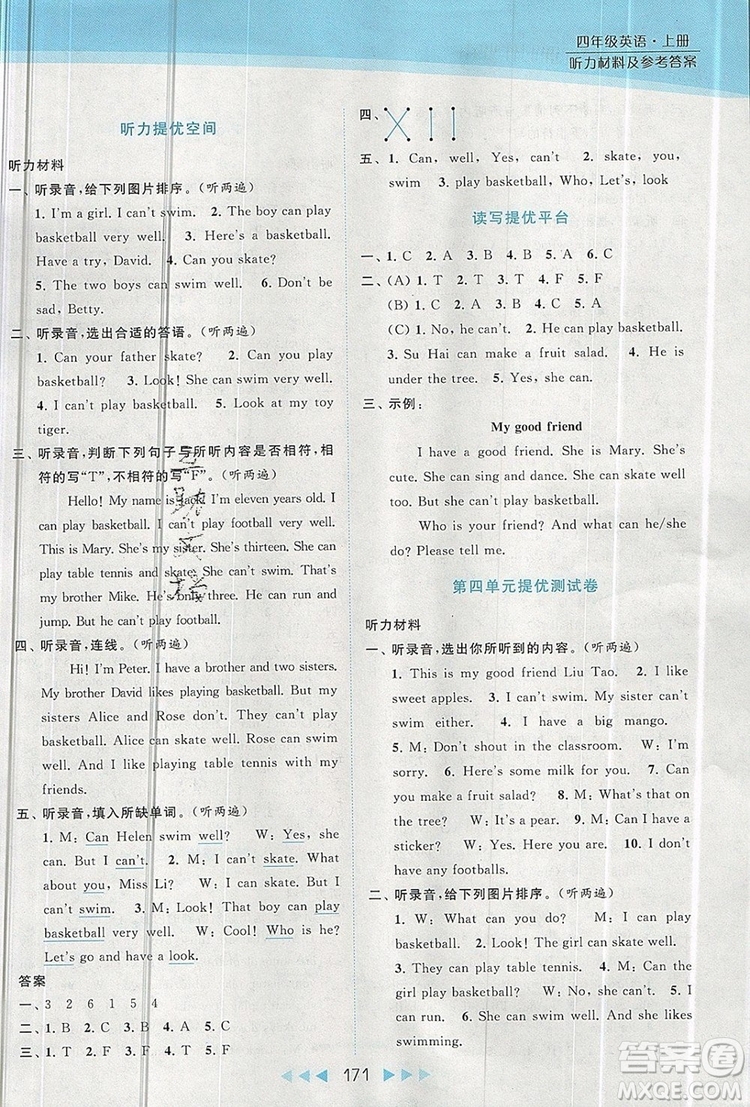 四年级英语·上册
听力材料及参考答案
听力提优空间
听力材料
一、听录音,给下列图片排序。(听两遍)
1. I'm a girl. I can't swim. 2. The boy can play
basketball very well. 3. Here's a basketball.
Have a try, David. 4. Can you skate?
5. The two boys can swim well. 6. Don't be
sad, Betty.
二、听录音,选出合适的答语。(听两遍)
1. Can your father skate? 2. Can you play
basketball? 3. Look! She can swim very well.
4. I can't play basketball. 5. Look at my toy
tiger.
三、听录音,判断下列句子与所听内容是否相符,相
符的写“T”,不相符的写“F”。(听两遍)
Hello! My name is Jack! I'm eleven years old. I
can play basketball. I can't play football very well.
This is Mary. She's my sister. She's thirteen. She can
play table tennis and skate. She can't swim. This is my
brother Mike. He's only three. He can run and
jump. But he can't play basketball.
四、听录音,连线。(听两遍)
Hi! I'm Peter. I have a brother and two sisters.
My brother David likes playing basketball. But my
sisters Alice and Rose don't. They can't play
basketball. Alice can skate well. Rose can swim
well. And I like playing table tennis with my
friends.
五、听录音,填入所缺单词。(听两遍)
1. M: Can Helen swim well? W: Yes, she
can. But I can't. 2. M: I can't skate. What
about you, Miss Li? W: I can skate. But I
can't swim. 3. M: Look! That boy can play
basketball. W: Cool! Who is he? M:
Let's go and have a look.
答案
一、3 2 6 1 5 4
二、1. B 2. B 3. A 4. A 5. C
三、1. T 2. F 3. F 4. F 5. T
四、
五、1. Can, well, Yes, can't 2. skate, you,
swim 3. play basketball, Who, Let's, look
读写提优平台
一、1. C 2. A 3. C 4. B 5. A 6. C
二、(A) 1. T 2. T 3. T 4. F 5. F
(B) 1. C 2. A 3. B 4. A 5. B
(C) 1. No, he can't. 2. He can play basketball.
3. Su Hai can make a fruit salad. 4. He is
under the tree. 5. Yes, he can.
三、示例:
My good friend
I have a good friend. She is Mary. She's
cute. She can sing and dance. She can skate well
too. But she can't play basketball.
Who is your friend? And what can he/she
do? Please tell me.
第四单元提优测试卷
听力材料
一、听录音,选出你所听到的内容。(听两遍)
1. This is my good friend Liu Tao. 2. I like
sweet apples. 3. I can't swim. My sister can't
swim either. 4. I have a big mango.
5. M: Don't shout in the classroom. W: I'm
sorry. 6. Here's some milk for you. 7. Can
you make a fruit salad? 8. M: What's that on
the desk? W: It's a pear. 9. Can I have a
sticker? 10. M: How many footballs? W: I
don't have any footballs.
二、听录音,给下列图片排序。(听两遍)
1. W: What can you do? M: I can play
basketball. 2. Look! The girl can skate well.
3. They can play table tennis. 4. M: Can the
girl play basketball? W: No, she can't. 5. I
can run. 6. My cousin can swim. She likes
swimming.
171
答案卷
MXQE.COM